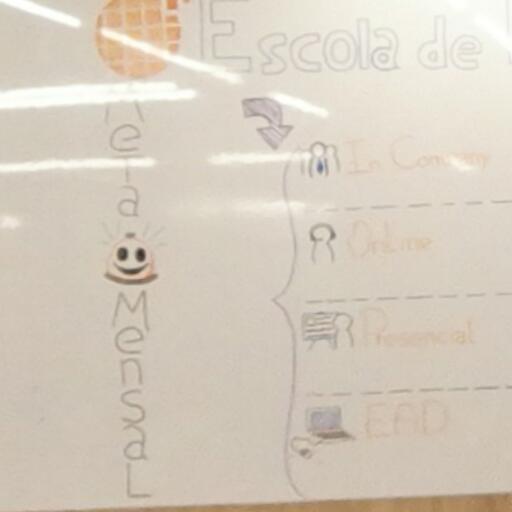 Escola de
Meta
Mensal
In Company
Online
Presencial
EAD